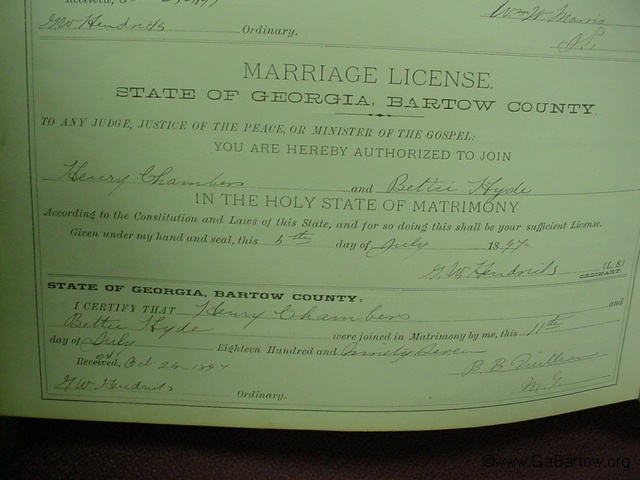 Wm W. Morris
G.W. Hendricks Ordinary.
MARRIAGE LICENSE.
STATE OF GEORGIA, BARTOW COUNTY.
TO ANY JUDGE, JUSTICE OF THE PEACE, OR MINISTER OF THE GOSPEL:
YOU ARE HEREBY AUTHORIZED TO JOIN
Henry Chambers and Bettie Hyde
IN THE HOLY STATE OF MATRIMONY
According to the Constitution and Laws of this State, and for so doing this shall be your sufficient License.
Given under my hand and seal, this day of July 1897
G.W. Hendricks (L. S.)
ORDINARY.
STATE OF GEORGIA, BARTOW COUNTY:
I CERTIFY THAT Henry Chambers and
Bettie Hyde were joined in Matrimony by me, this 11th
day of July Eighteen Hundred and ninety Seven
Received, Oct 1897
M.G.
G.W. Hendricks Ordinary.
©www.GaBartow.org